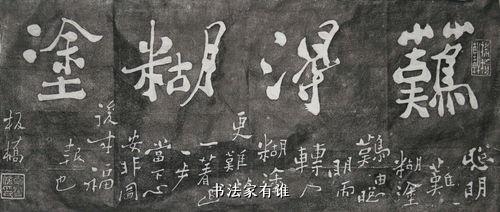 難得糊塗
聰明
難
糊塗
難由聰
明而
轉入
糊塗
更難放
一著退
一步
當下心
安非圖
後來福
報也
板橋
书法家有雄